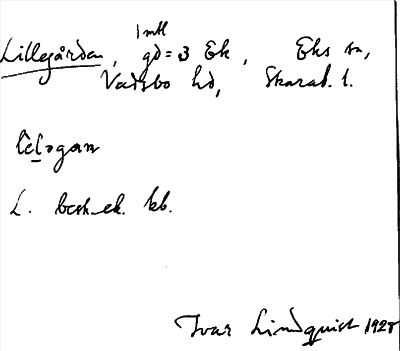 1 mtl
Lillegården, gd = 3 Ek, Eks sn,
Vadsbo hd, Skarab. l.
L. besk. ek. kb.
Ivar Lindquist 1928